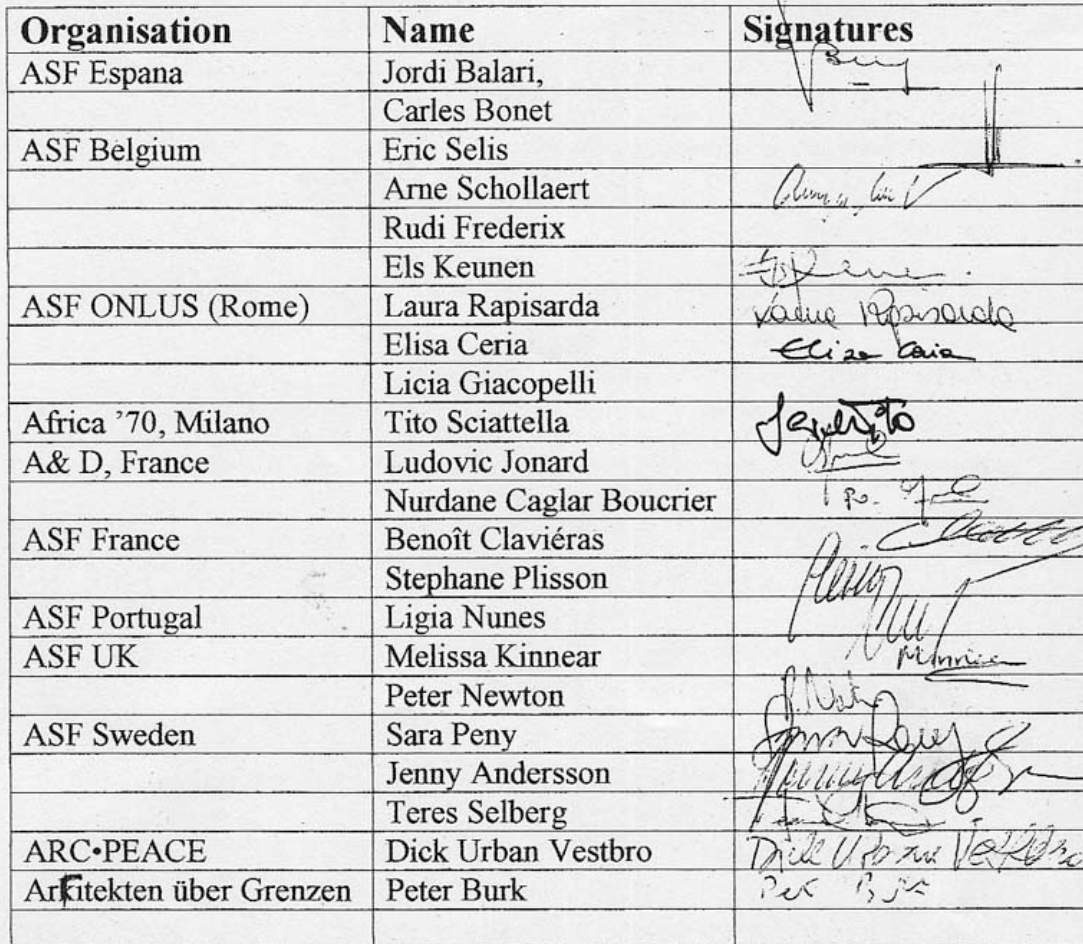 Organisation Name Signatures
ASF Espana Jordi Balari,
Carles Bonet
ASF Belgium Eric Selis
Arne Schollaert
Rudi Frederix
Els Keunen
ASF ONLUS (Rome) Laura Rapisarda Laura Rapisarda
Elisa Ceria Elisa Ceria
Licia Giacopelli
Africa ’70, Milano Tito Sciattella
A& D, France Ludovic Jonard
Nurdane Caglar Boucrier po.
ASF France Benoît Claviéras
Stephane Plisson
ASF Portugal Ligia Nunes
ASF UK Melissa Kinnear
Peter Newton
ASF Sweden Sara Peny
Jenny Andersson
Teres Selberg
ARC•PEACE Dick Urban Vestbro Dick Urban Vestbro
Arkitekten über Grenzen Peter Burk